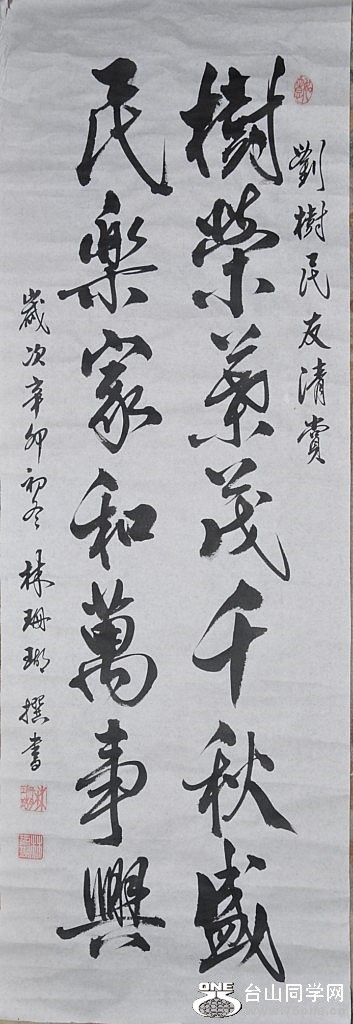 劉樹民友清賞
樹榮葉茂千秋盛
民樂家和萬事興
歲次辛卯初冬林珊瑚撰書
ONE
台山同学网